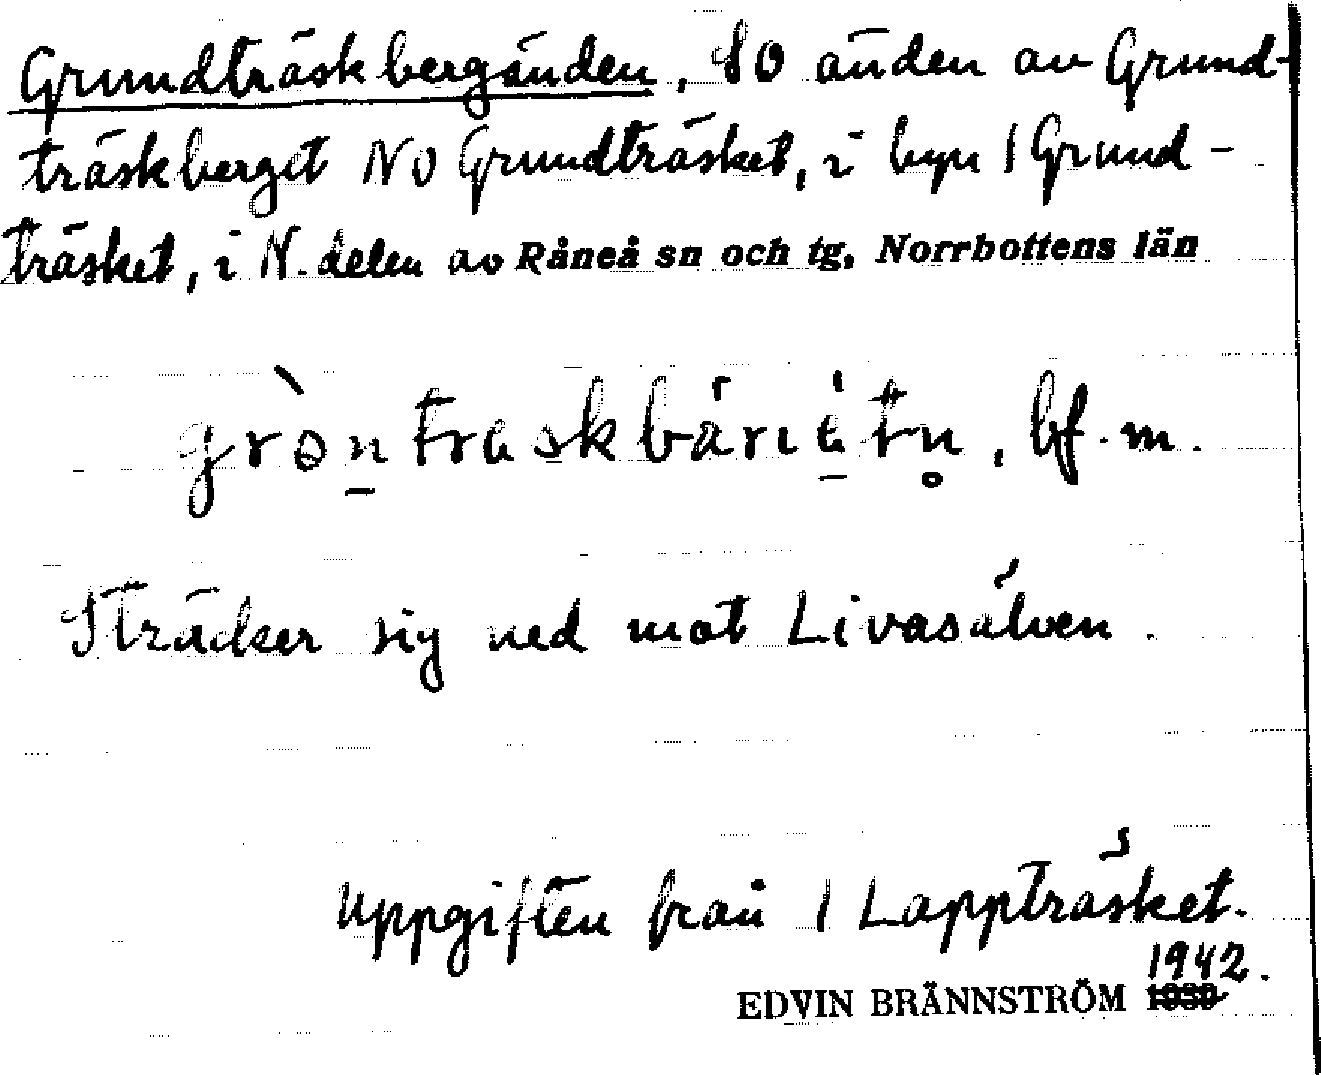 Grundträskbergänden, SO änden av Grund-
träskberget NO Grundträsket, i byn 1 Grund-
träsket, i N. delen av Råneå sn och tg, Norrbottens län
bf. m.
Sträcker sig ned mot Livasälven.
Uppgiften från 1 Lappträsket.
1942.
EDVIN BRÄNNSTRÖM 1930